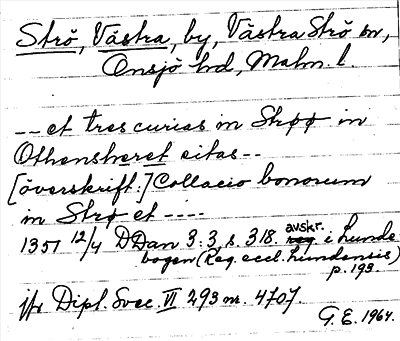 Strö, Västra, by, Västra Strö sn,
Onsjö hd, Malm. l.
-- et tres curias in Strøø in
Othensheret sitas --
[överskrift:] Collacio bonorum
in Strø et ----
1351 12/4 DDan 3:3, s. 318. avskr. i Lunde
bogen (Reg. eccl. Lundensis)
p. 193.
jfr Dipl. Svec. VI 293 nr. 4707.
G. E. 1964.